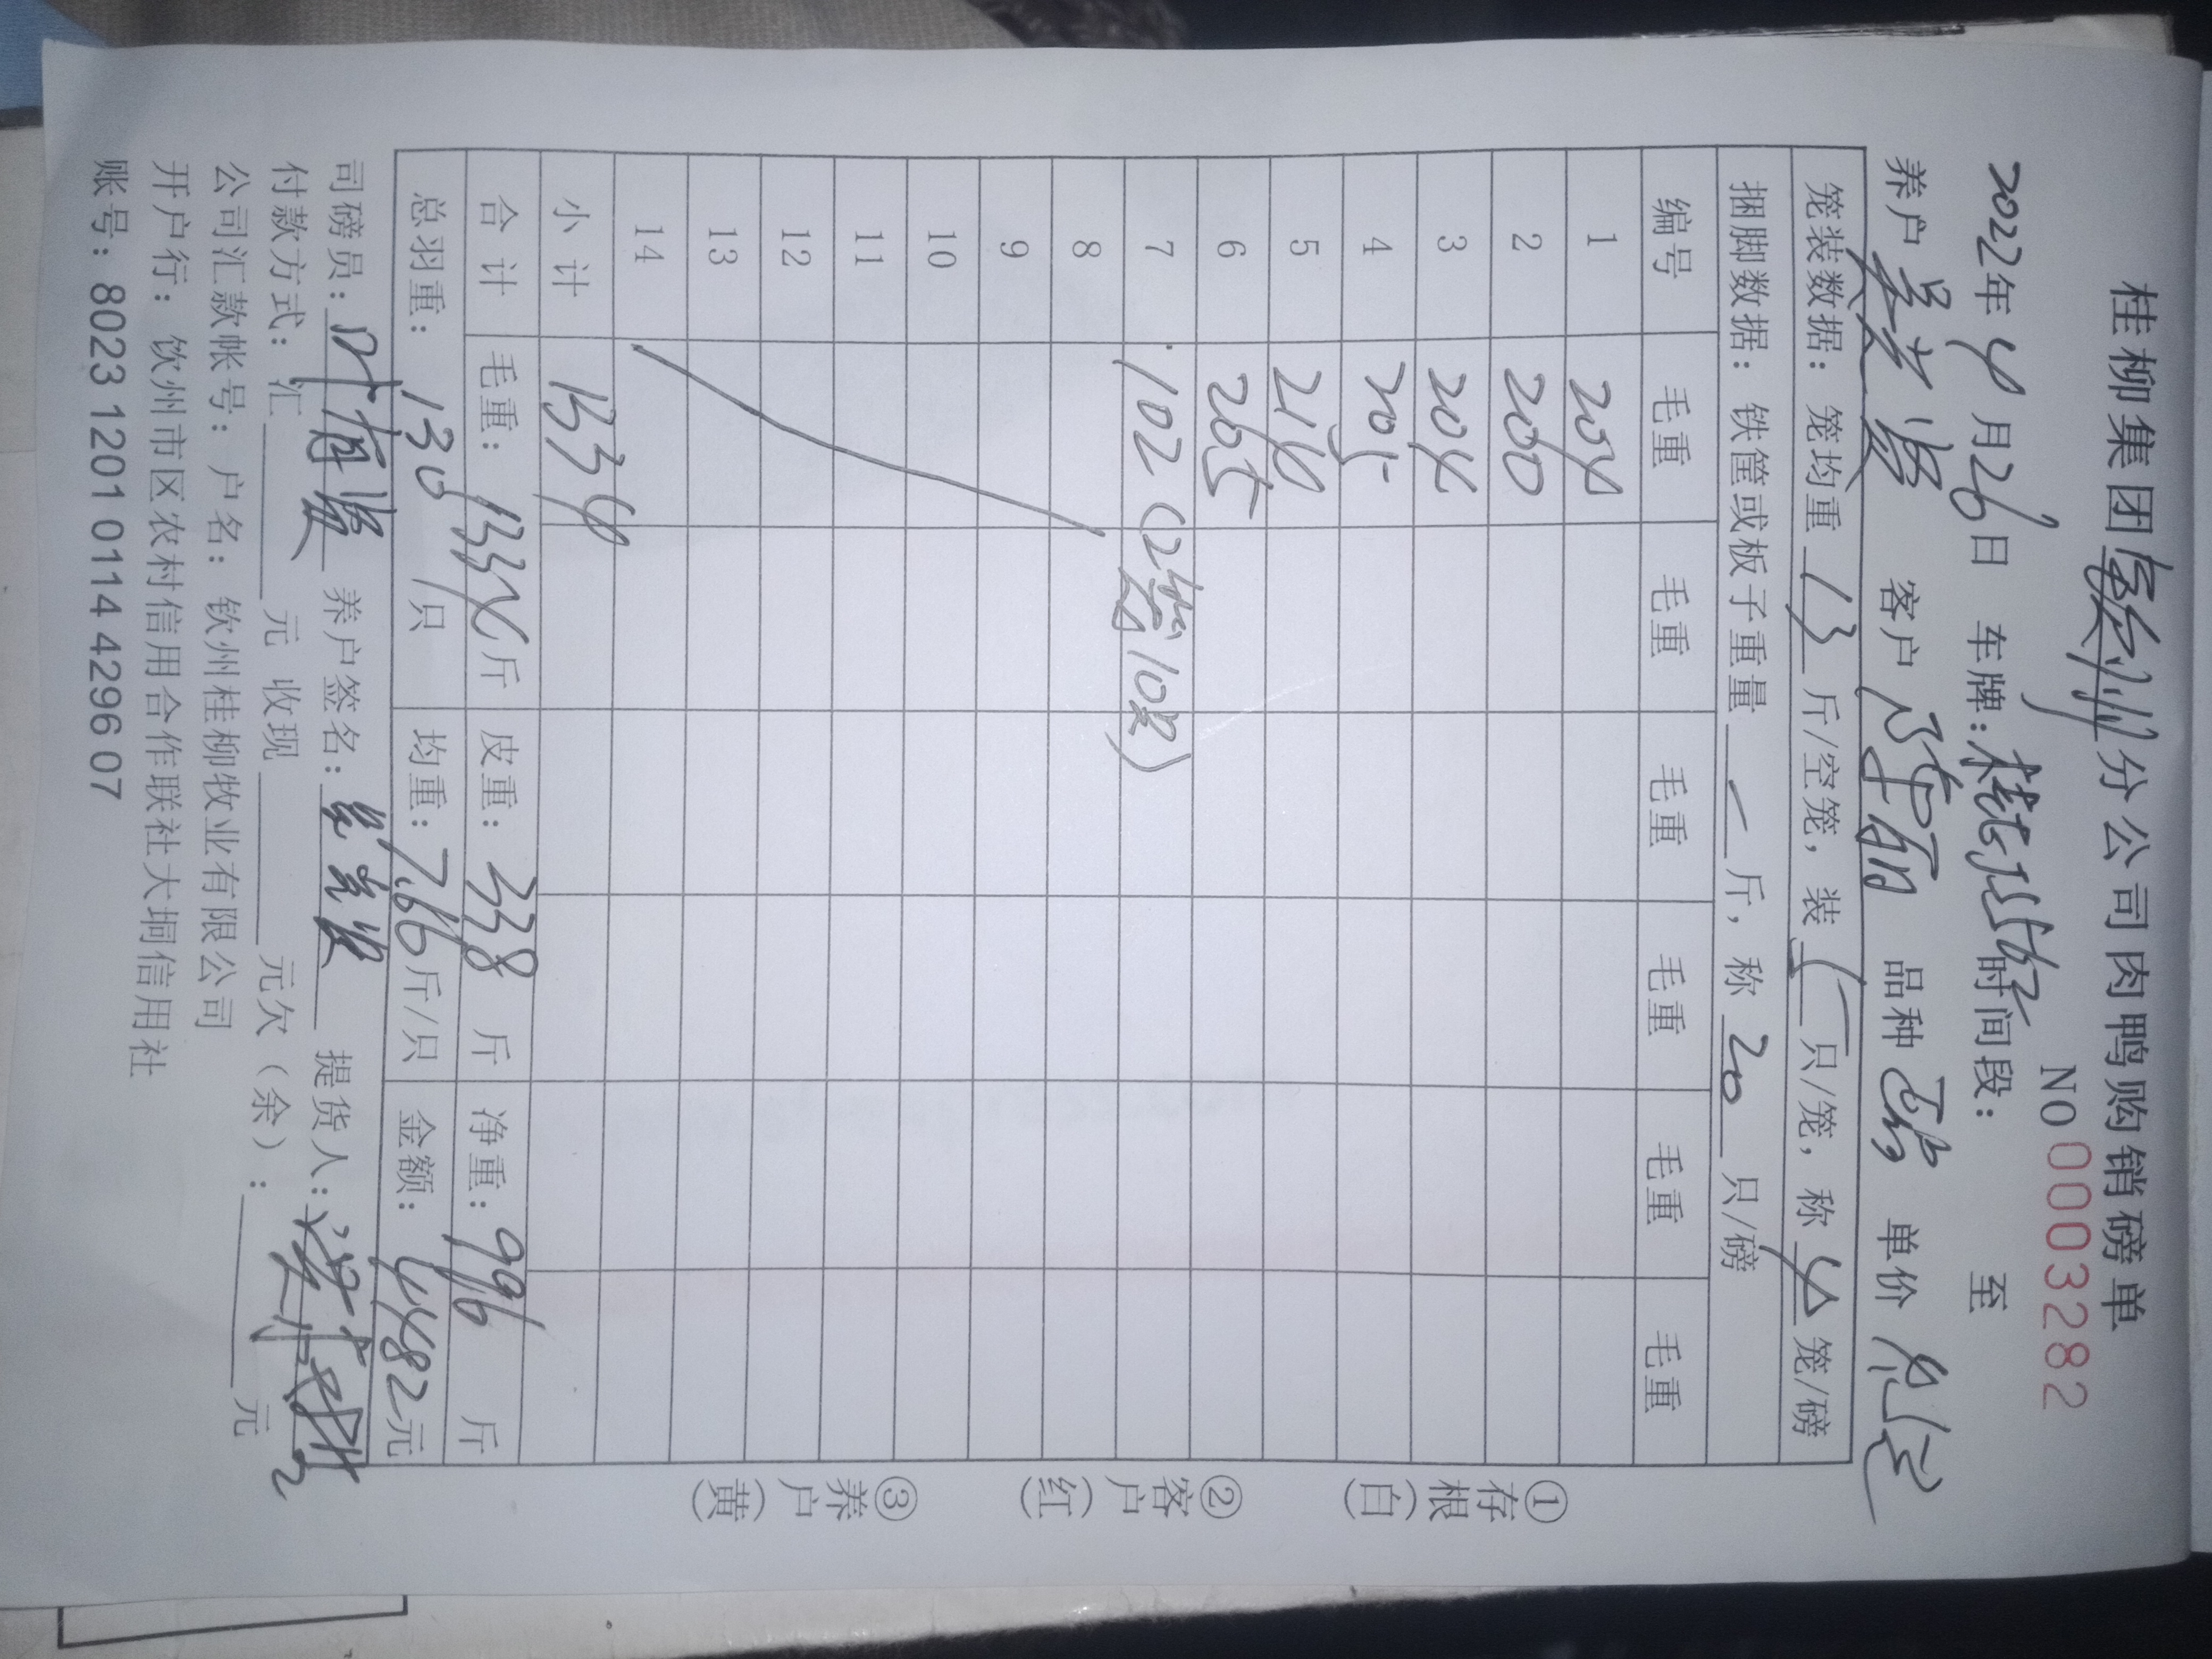 桂柳集团钦州分公司肉鸭购销磅单
NO 0003282
2022年4月26日 车牌：桂 时间段： 至
养户 客户 品种 单价
笼装数据：笼均重 13 斤/空笼，装 5 只/笼，称 4 笼/磅
捆脚数据：铁筐或板子重量 — 斤，称 20 只/磅
编号 毛重 毛重 毛重 毛重 毛重 毛重
1 204
2 200
3 204
4 205
5 210
6 205
7 102（2笼10只）
8
9
10
11
12
13
14
小计 1334
合计 毛重：1334斤 皮重：338 斤 净重：996 斤
总羽重：130 /只 均重：7.66斤/只 金额：4482元
司磅员： 养户签名： 提货人：
付款方式：汇 元 收现 元欠（余）： 元
公司汇款帐号：户名：钦州桂柳牧业有限公司
开户行：钦州市区农村信用合作联社大垌信用社
账号：8023 1201 0114 4296 07
①存根（白）
②客户（红）
③养户（黄）